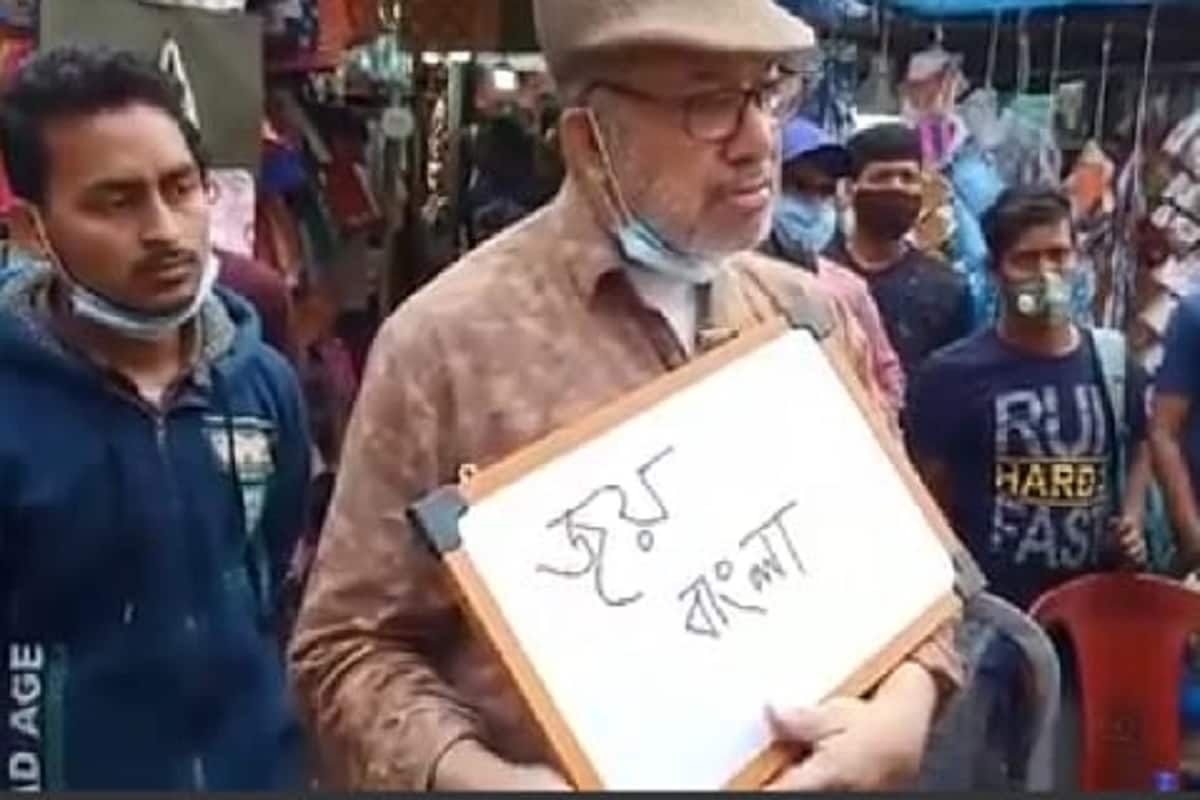 জয়
বাংলা
RUN
HARD
FAST
AD AGE